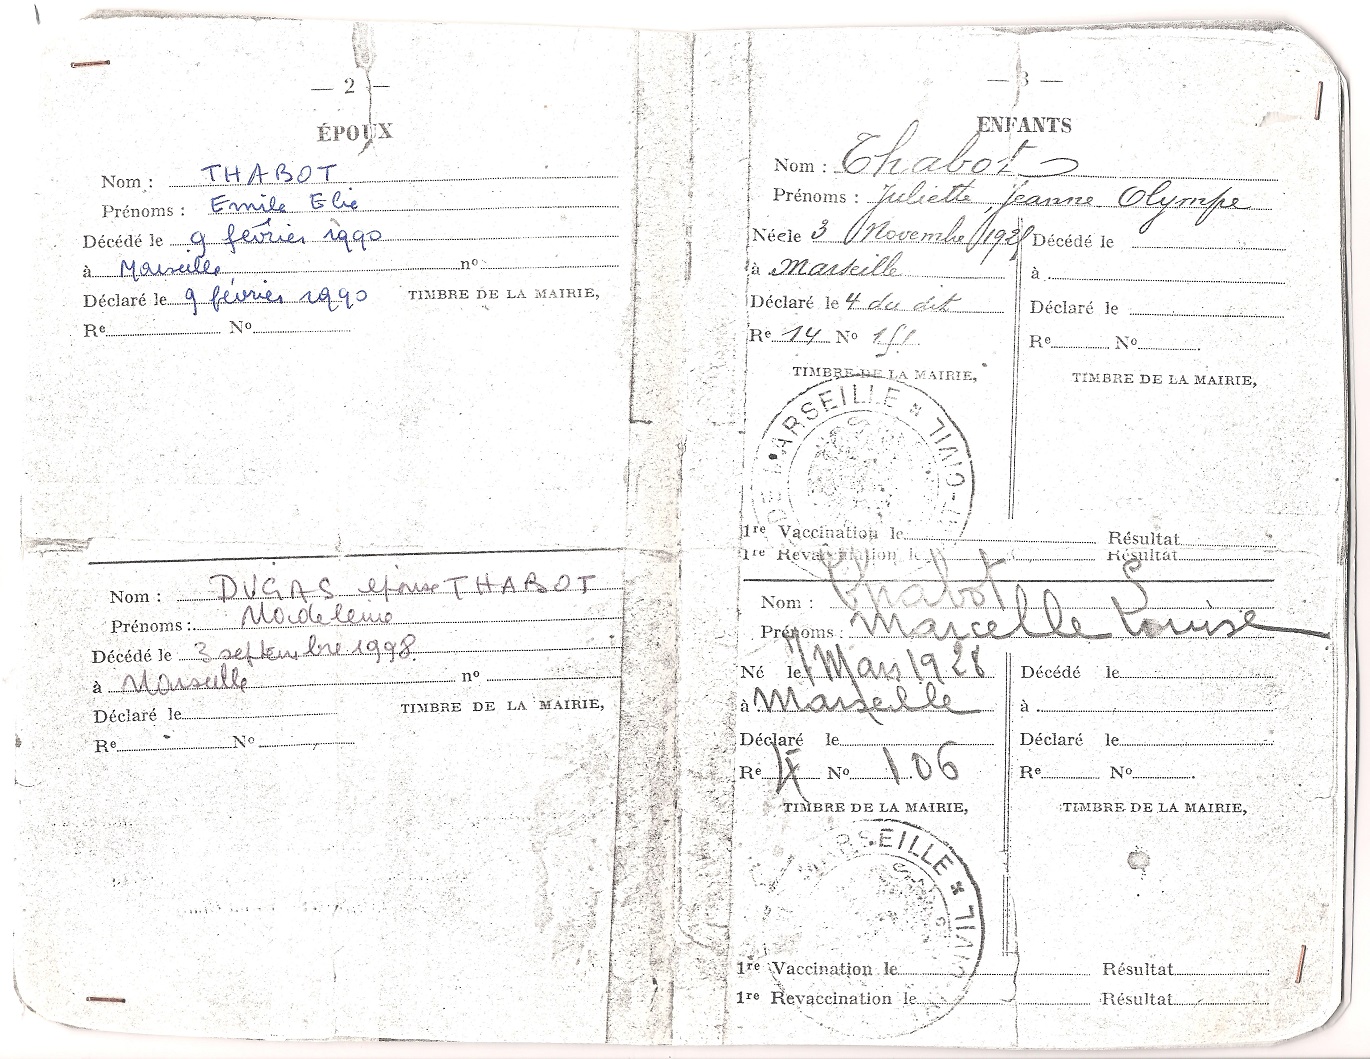 — 2 —
ÉPOUX
Nom : THABOT
Prénoms : Emile Elie
Décédé le 9 février 1990
à Marseille nº
Déclaré le 9 février 1990 TIMBRE DE LA MAIRIE,
Re Nº
Nom : DUGAS épouse THABOT
Prénoms : Madeleine
Décédé le 3 septembre 1998
à Marseille nº
Déclaré le TIMBRE DE LA MAIRIE,
Re Nº
— 3 —
ENFANTS
Nom : Thabot
Prénoms : Juliette, Jeanne Olympe
Née le 3 Novembre
à Marseille
Déclaré le 4 du dit
Re 14 Nº
TIMBRE DE LA MAIRIE,
Décédé le
à
Déclaré le
Re Nº
TIMBRE DE LA MAIRIE,
DE MARSEILLE * CIVIL
1re Vaccination le Résultat
1re Revaccination le Résultat
Nom : Thabot
Prénoms : Marcelle Louise
Né le Mars 1928
à Marseille
Déclaré le
Re Nº 106
TIMBRE DE LA MAIRIE,
Décédé le
à
Déclaré le
Re Nº
TIMBRE DE LA MAIRIE,
MARSEILLE * CIVIL
1re Vaccination le Résultat
1re Revaccination le Résultat